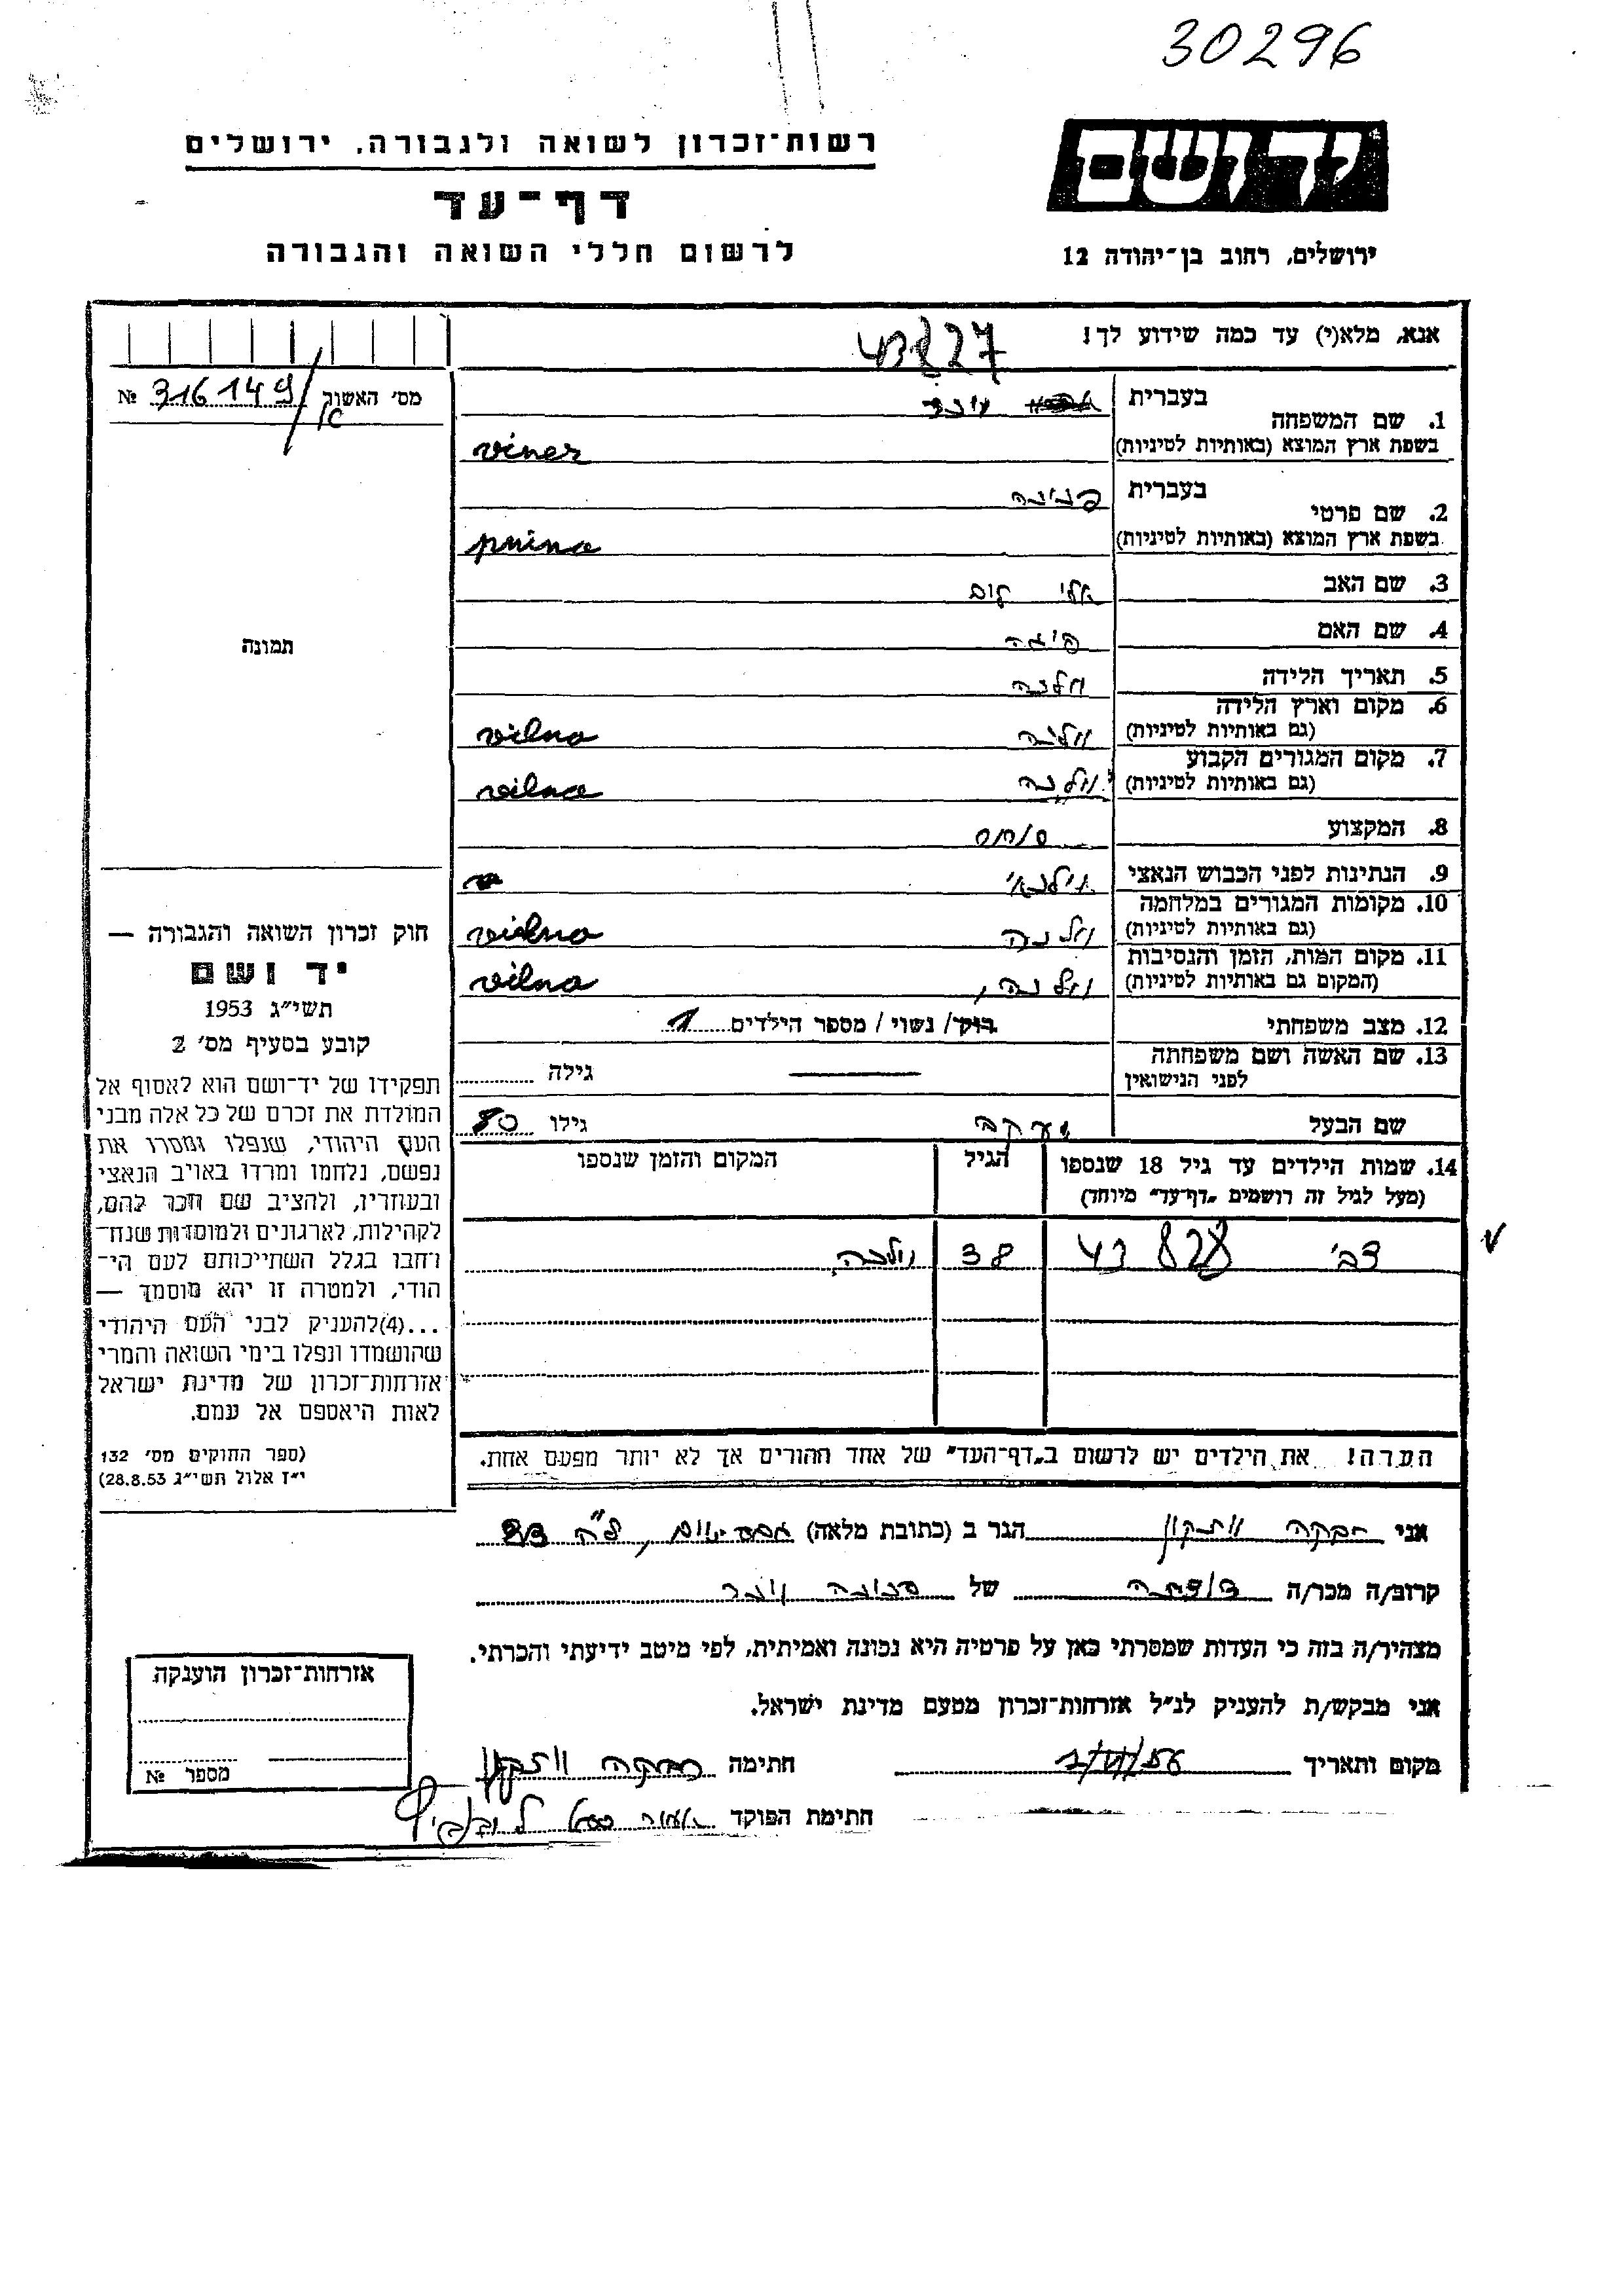 30296
יד ושם
רשות־זכרון לשואה ולגבורה, ירושלים
דף־עד
לרשום חללי השואה והגבורה
ירושלים, רחוב בן־יהודה 12
אנא, מלא(י) עד כמה שידוע לך!
מס׳ האשוק № 316149
1. שם המשפחה
בעברית
בשפת ארץ המוצא (באותיות לטיניות) viner
2. שם פרטי
בעברית פנינה
בשפת ארץ המוצא (באותיות לטיניות) pnina
3. שם האב
4. שם האם
5. תאריך הלידה וילנה
6. מקום וארץ הלידה
(גם באותיות לטיניות) וילנה vilna
7. מקום המגורים הקבוע
(גם באותיות לטיניות) וילנה vilna
8. המקצוע
9. הנתינות לפני הכבוש הנאצי
10. מקומות המגורים במלחמה
(גם באותיות לטיניות) וילנה vilna
11. מקום המות, הזמן והנסיבות
(המקום גם באותיות לטיניות) וילנה, vilna
12. מצב משפחתי רוק/ נשוי / מספר הילדים 1
13. שם האשה ושם משפחתה
לפני הנישואין
גילה
שם הבעל יעקב גילו 80
14. שמות הילדים עד גיל 18 שנספו
(מעל לגיל זה רושמים „דף־עד” מיוחד)
הגיל
המקום והזמן שנספו
צבי 43828 38 וילנה
הערה! את הילדים יש לרשום ב„דף־העד” של אחד ההורים אך לא יותר מפעם אחת.
תמונה
חוק זכרון השואה והגבורה —
יד ושם
תשי״ג 1953
קובע בסעיף מס׳ 2
תפקידו של יד־ושם הוא לאסוף אל
המולדת את זכרם של כל אלה מבני
העם היהודי, שנפלו ומסרו את
נפשם, נלחמו ומרדו באויב הנאצי
ובעוזריו, ולהציב שם וזכר להם,
לקהילות, לארגונים ולמוסדות שנח־
רחבו בגלל השתייכותם לעם הי־
הודי, ולמטרה זו יהא מוסמך —
...(4)להעניק לבני העם היהודי
שהושמדו ונפלו בימי השואה והמרי
אזרחות־זכרון של מדינת ישראל
לאות היאספם אל עמם.
(ספר החוקים מס׳ 132
י״ז אלול תשי״ג 28.8.53)
אני רבקה הגר ב (כתובת מלאה)
קרוב/ה מכר/ה של פנינה וינר
מצהיר/ה בזה כי העדות שמסרתי כאן על פרטיה היא נכונה ואמיתית, לפי מיטב ידיעתי והכרתי.
אני מבקש/ת להעניק לנ״ל אזרחות־זכרון מטעם מדינת ישראל.
מקום ותאריך חתימה רבקה
חתימת הפוקד
אזרחות־זכרון הוענקה
מספר №